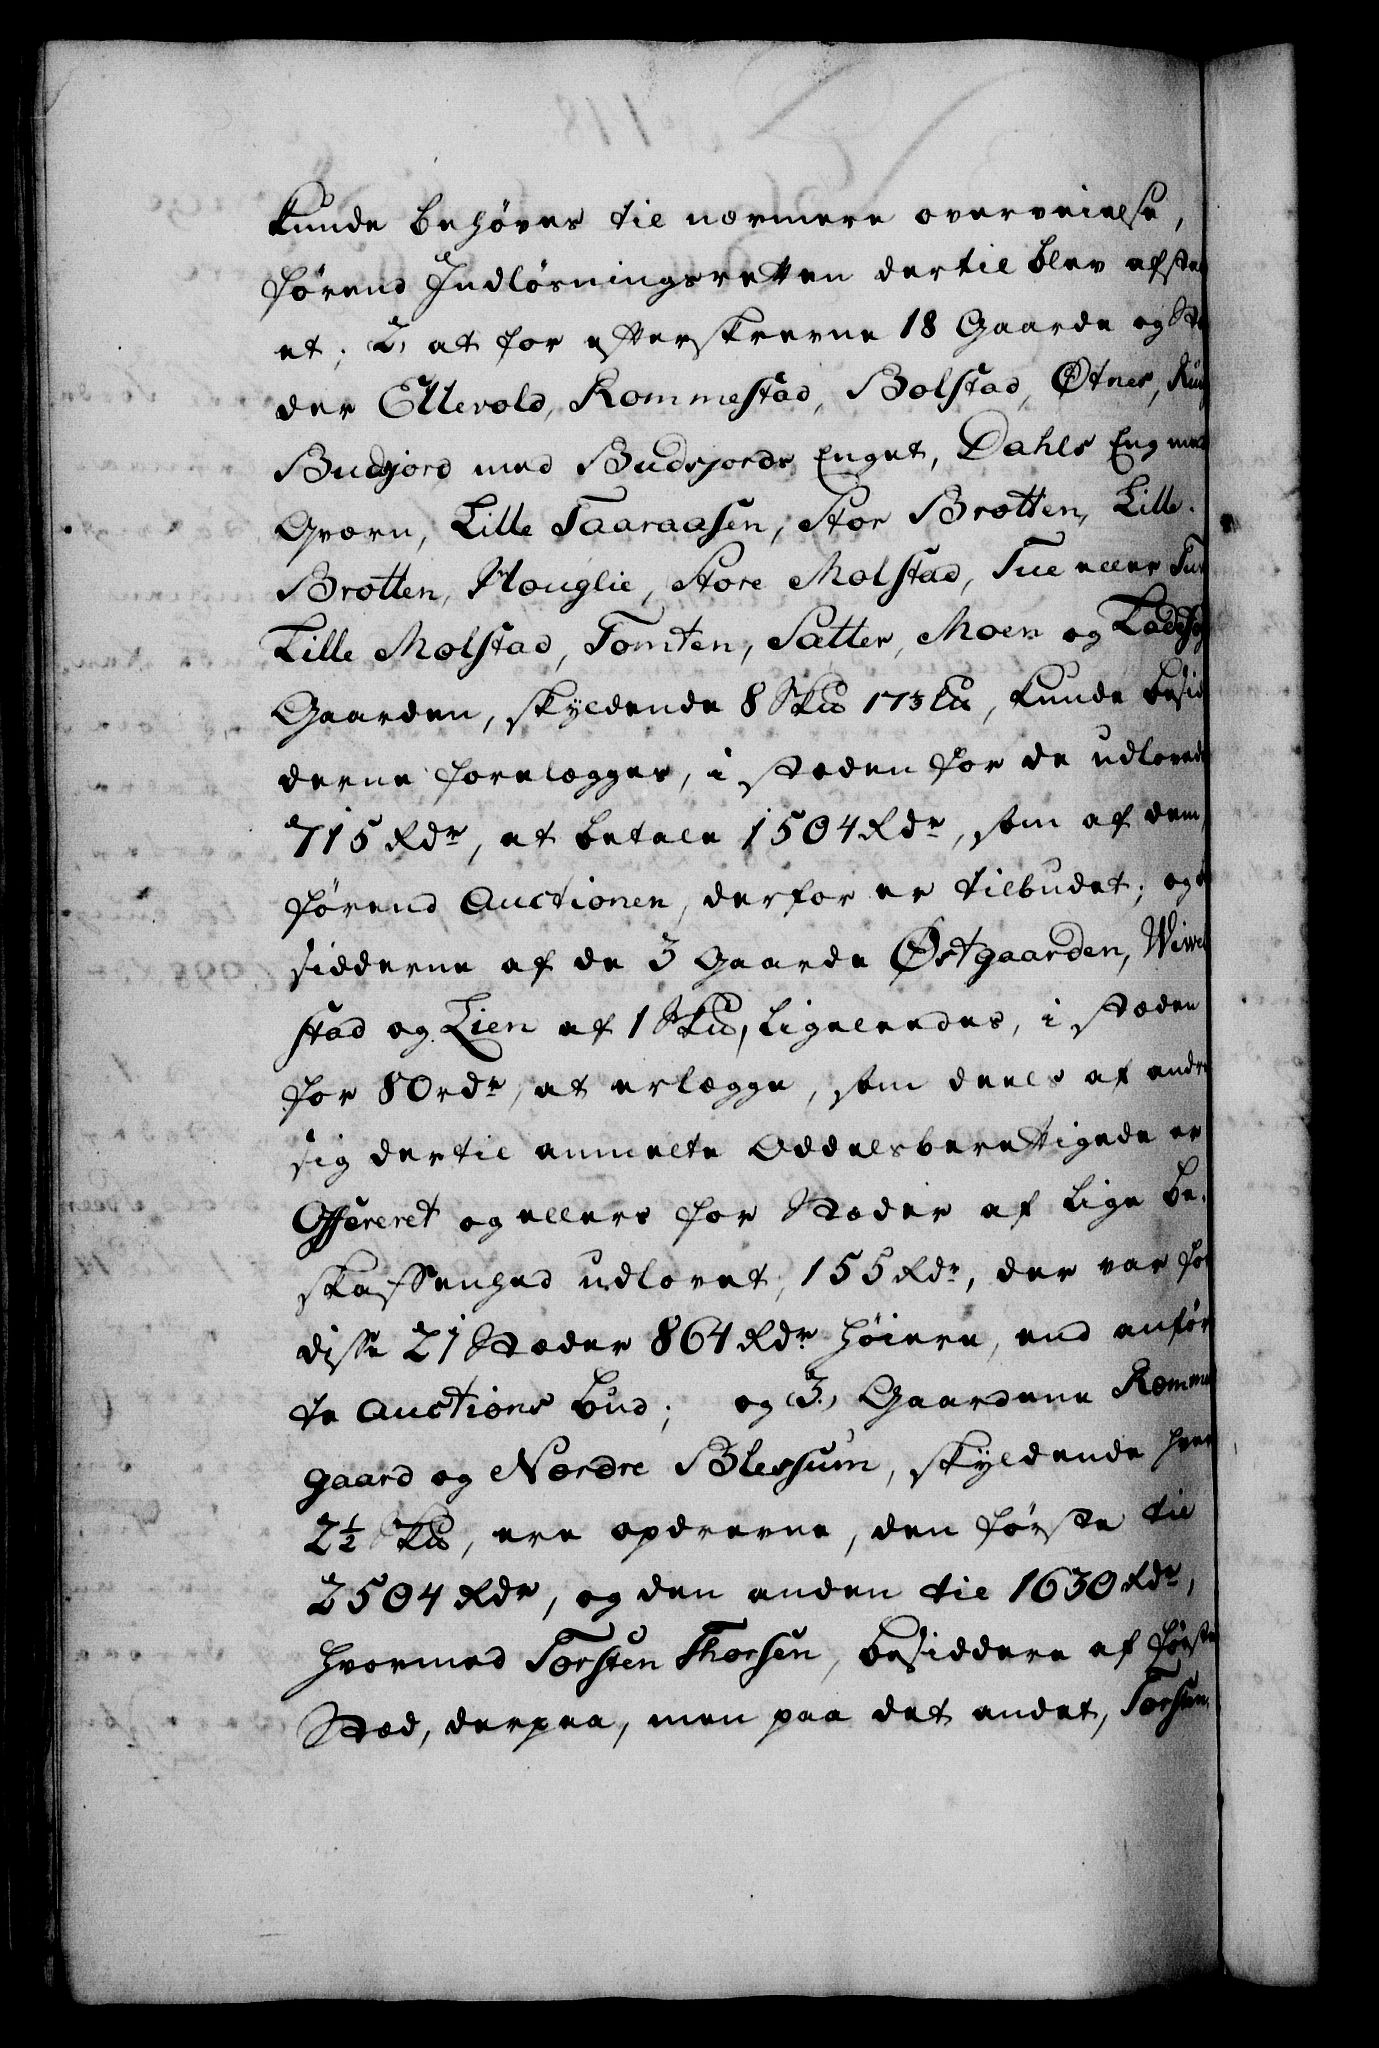 kunde behøves til nærmere overveielse,
førend Indløsningsretten dertil blev afstaa
et; 2, at for efterskrevne 18 Gaarde og Stæ
der Ellevold, Rommestad, Bolstad, Øtnes, Rud
Budsjord med Budsjords Enget, Dahls Eng med
Qværn, Lille Taaraasen, Stor Brotten, Lille
Brotten, Houglie, Store Molstad, Tue eller Tue
Lille Molstad, Tomten, Sætter, Moen og
Gaarden, skyldende 8 Skd 17⅓ Ld, kunde besid
derne forelægges, i stæden for de udlovede
715 Rdr, at betale 1504 Rdr, som af dem,
førend Auctionen, derfor er tilbudet; og be
sidderne af de 3 Gaarde Østgaarden, Wiwel
stad og Lien af 1 Skd, ligeleedes, i stæden
for 80 rdr, at erlægge, som deels af andre
sig dertil anmelte Oddelsberettigede er
Offereret og ellers for Stæder af lige be-
skaffenhed udlovet, 155 Rdr, der var for
disse 21 Stæder 864 Rdr høiere, end anfør
te Auctions bud; og 3, Gaardene Romme
gaard og Nordre Blessum, skyldende hver
2½ Skd, ere opdrevne, den første til
2504 Rdr, og den anden til 1630 Rdr,
hvormed Torsten Thorsen, besiddere af første
Stæd, derpaa, men paa det andet,